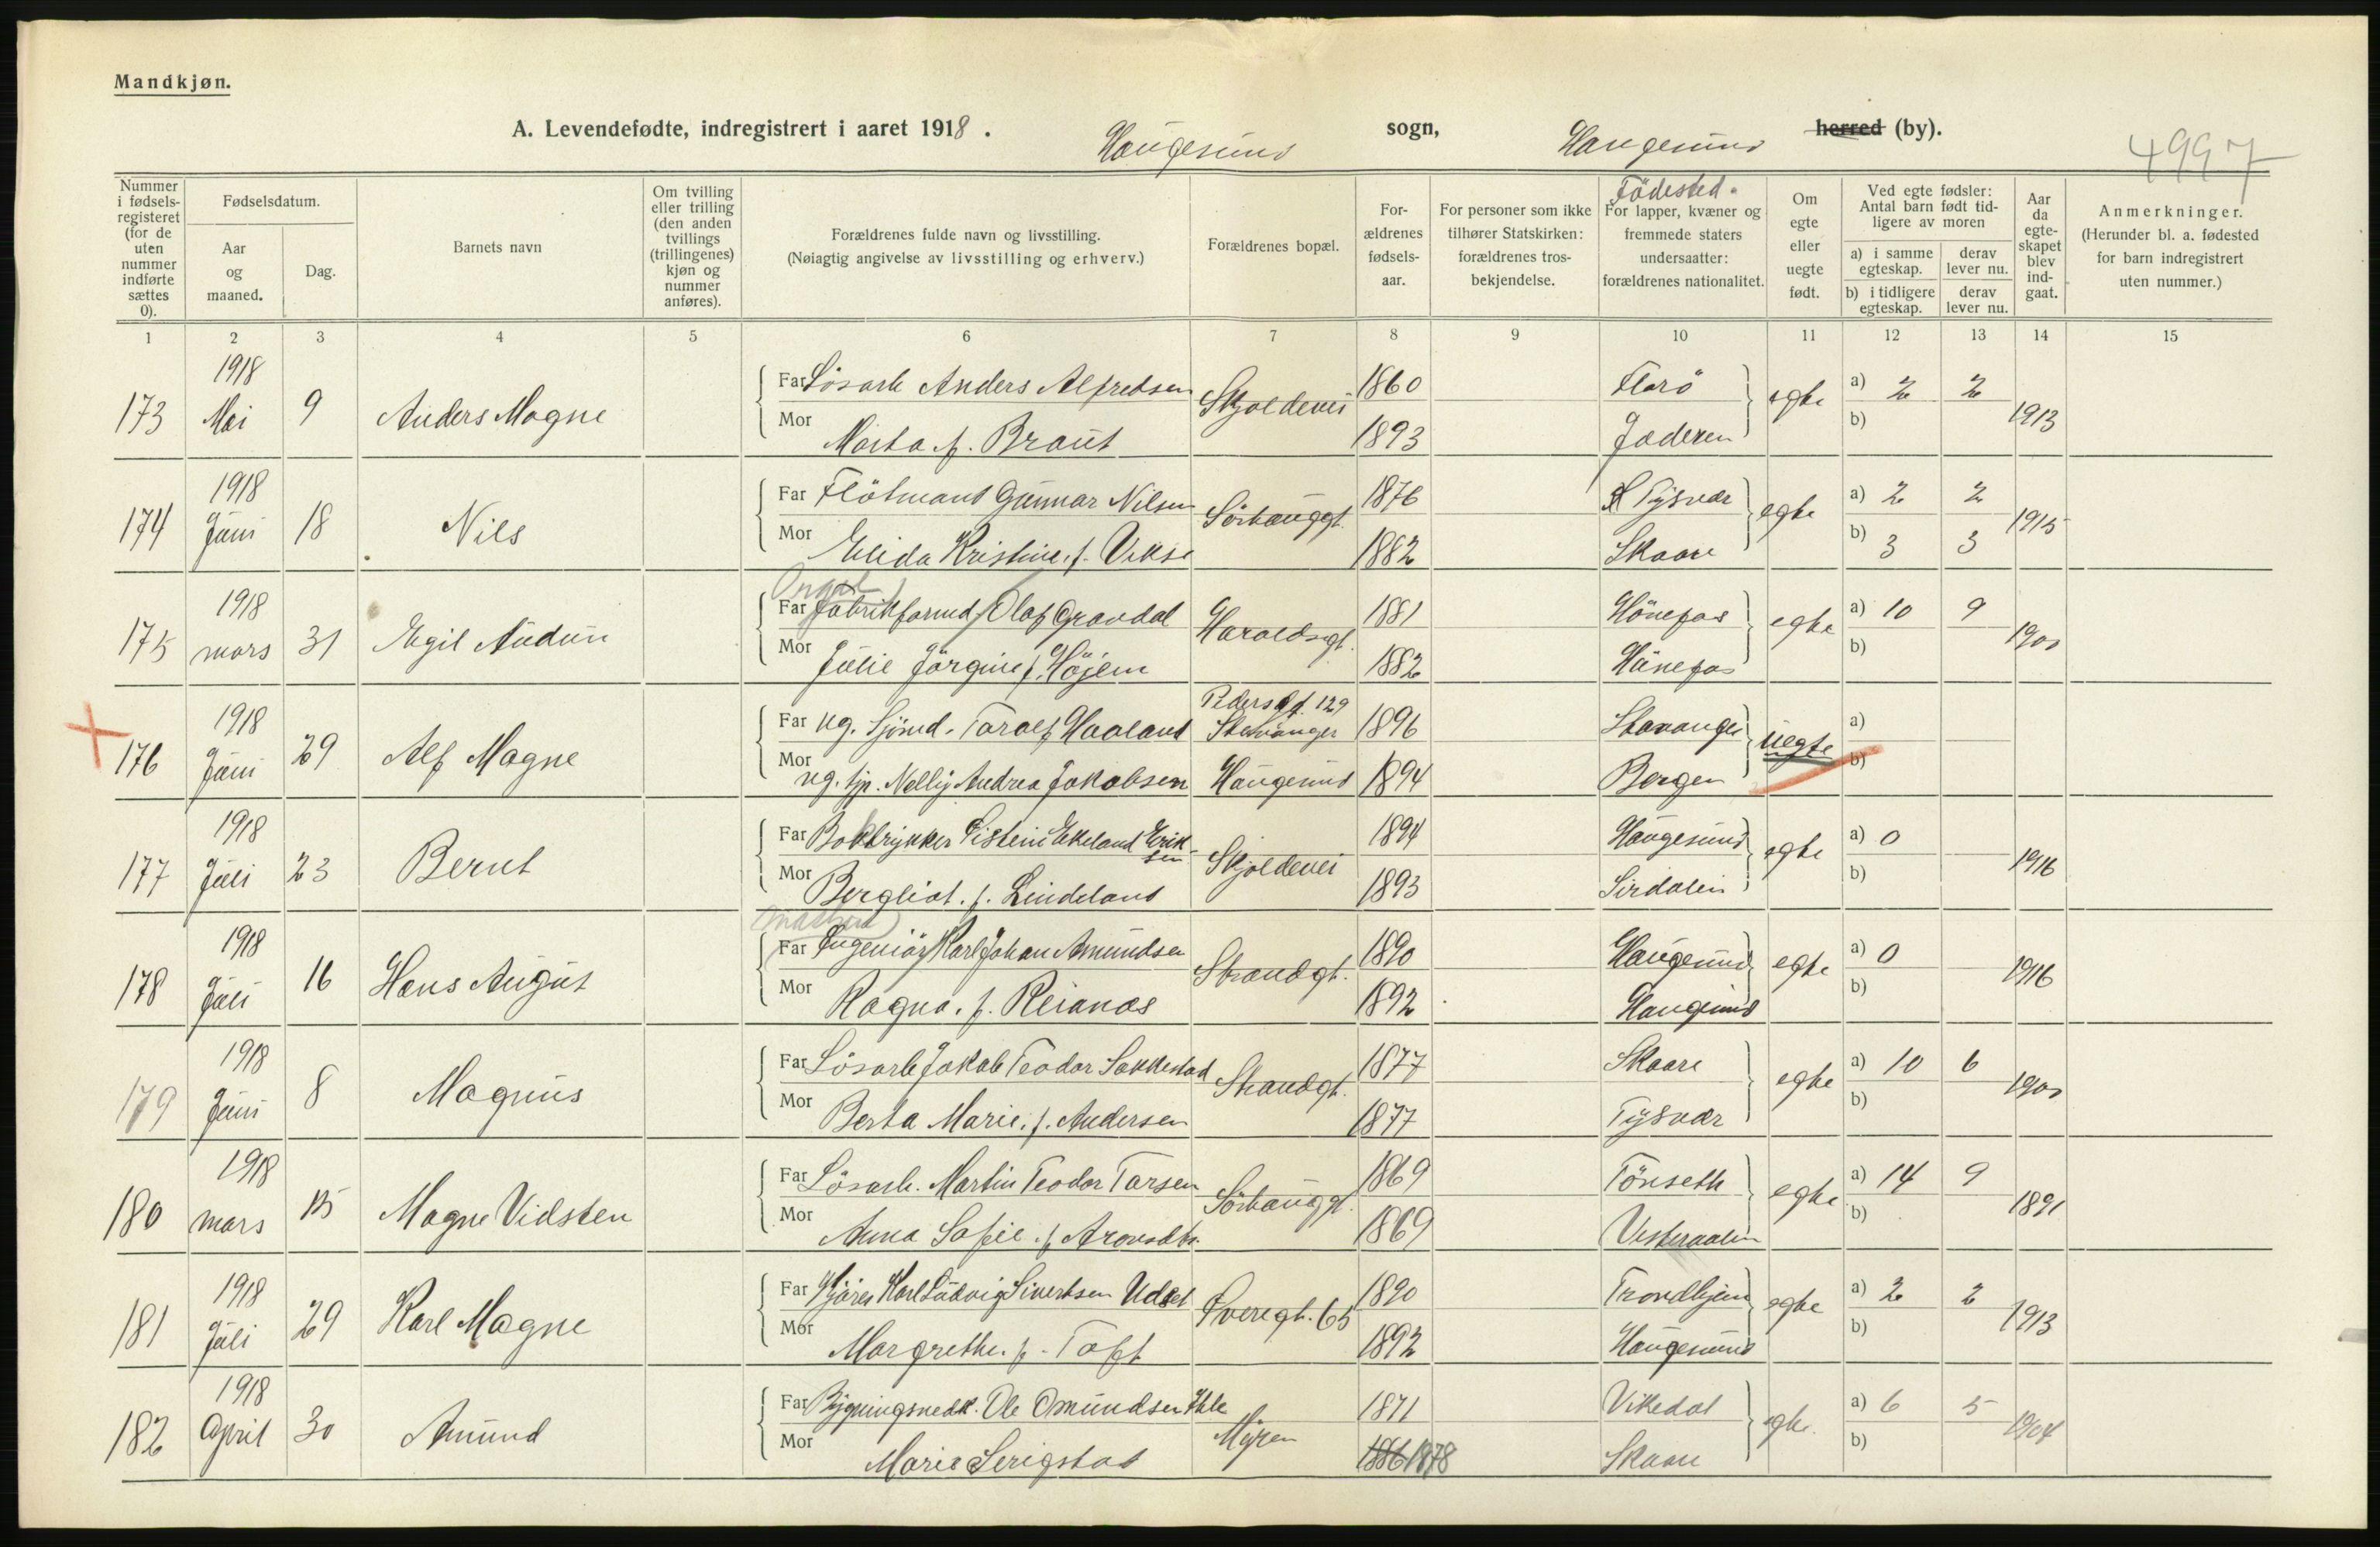 Mandkjøn.
A. Levendefødte, indregistrert i aaret 1918. Haugesund sogn, Haugesund herred (by).
4997
Nummer i fødsels-registeret (for de uten nummer indførte sættes 0).
Fødselsdatum.
Aar og maaned.
Dag.
Barnets navn
Om tvilling eller trilling (den anden tvillings (trillingenes) kjøn og nummer anføres).
Forældrenes fulde navn og livsstilling.
(Nøiagtig angivelse av livsstilling og erhverv.)
Forældrenes bopæl.
For-ældrenes fødsels-aar.
For personer som ikke tilhører Statskirken: forældrenes tros-bekjendelse.
Födested.
For lapper, kvæner og fremmede staters undersaatter: forældrenes nationalitet.
Om egte eller uegte født.
Ved egte fødsler: Antal barn født tid-ligere av moren
a) i samme egteskap.
derav lever nu.
b) i tidligere egteskap.
derav lever nu.
Aar da egte-skapet blev ind-gaat.
Anmerkninger.
(Herunder bl. a. fødested for barn indregistrert uten nummer.)
1 2 3 4 5 6 7 8 9 10 11 12 13 14 15
173 1918 Mai 9 Anders Magne
Far Lösarb Anders Alfredsen Skjoldevei 1860 Florö egte a) 2 2 1913
Mor Marta f. Braut 1893 Jæderen b)
174 1918 Juni 18 Nils
Far Flötmand Gunnar Nilsen Sörhauggt. 1876 Tysvær egte a) 2 2 1915
Mor Elida Kristine f. Vikse 1882 Skaare b) 3 3
175 1918 mars 31 Egil Audun
Far Fabrikformd Olaf Gravdal Haraldsgt. 1881 Hönefos egte a) 10 9 1900
Mor Julie Jörgine f. Höjem 1882 Hönefos b)
176 1918 Juni 29 Alf Magne
Pedersgt. 129
Far ug. Sjömd. Toralf Haaland Stavanger 1896 Stavanger uegte a)
Mor ug. tjp. Nelly Andrea Jakobsen Haugesund 1894 Bergen b)
177 1918 Juli 23 Bernt
Far Boktrykker Eistein Ekeland Eriksen Skjoldevei 1894 Haugesund egte a) 0 1916
Mor Bergliot. f. Lindeland 1893 Sirdalen b)
178 1918 Juli 16 Hans August
Far Ingeniör Karl Johan Amundsen Strandgt. 1890 Haugesund egte a) 0 1916
Mor Ragna. f. Reianes 1892 Haugesund b)
179 1918 Juni 8 Magnus
Far Lösarb Jakob Teodor Sakkestad Strandgt. 1877 Skaare egte a) 10 6 1900
Mor Berta Marie. f. Andersen 1877 Tysvær b)
180 1918 mars 15 Magne Vidsten
Far Lösarb. Martin Teodor Torsen Sörhauggt. 1869 Tönseth egte a) 14 9 1891
Mor Anna Sofie. f. 1869 Vesteraalen b)
181 1918 Juli 29 Karl Magne
Far Karl Ludvig Sivertsen Udset Sveregt. 65 1890 Trondhjem egte a) 2 2 1913
Mor Margrethe. f. Toft 1892 Haugesund b)
182 1918 April 30 Amund
Far Bygningsnedk. Ole Omundsen Myren 1871 Vikedal egte. a) 6 5 1904
Mor Marie Serigstad 1886 1878 Skaare b)